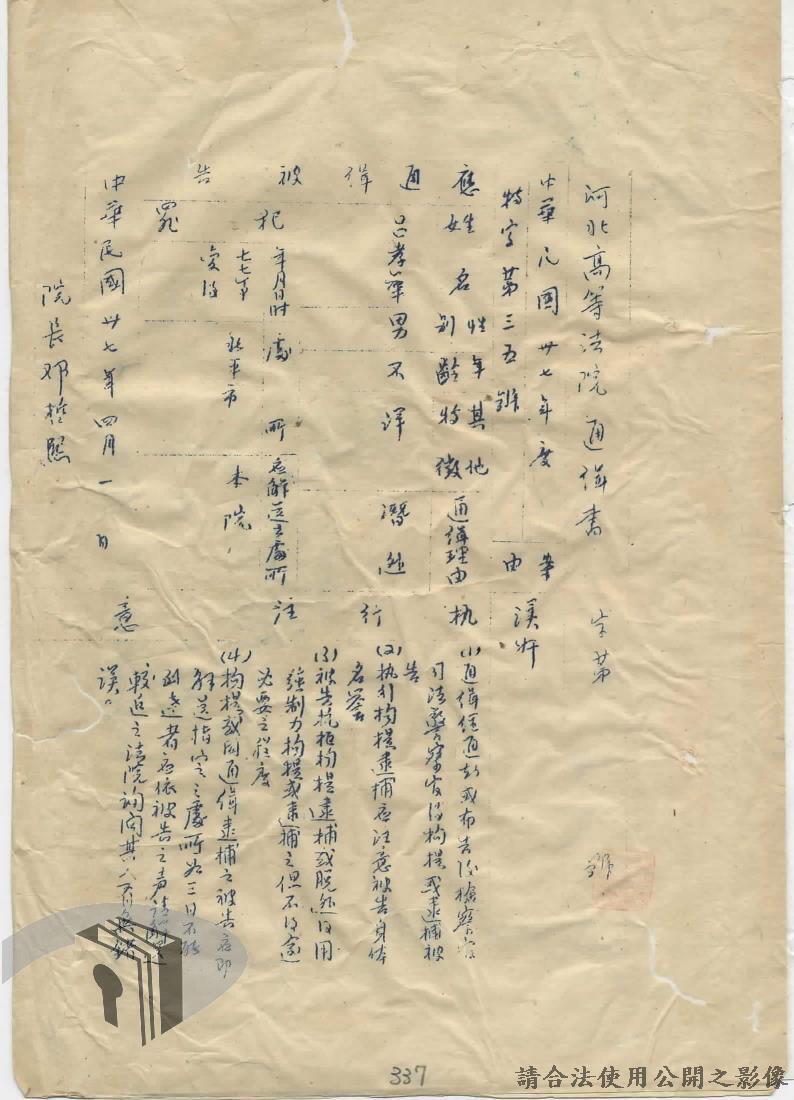 河北高等法院通緝書 字第 號
中華民國卅七年度
特字第三五號
案由
漢奸
應通緝被告
姓名
性別
年齡
其他特徵
通緝理由
呂孝華
男
不詳
潛逃
犯罪
年月日时
處所
應解送之處所
七七事變後
北平市
本院
执行注意
(1)通緝經通知或布告後檢察官
司法警察官得拘提或逮捕被
告
(2)执行拘提逮捕應注意被告身体
名譽
(3)被告抗拒拘提逮捕或脱逃得用
強制力拘提或逮捕之但不得逾
必要之程度
(4)拘提或因通緝逮捕之被告应即
解送指定之處所如三日不能
到達者应依被告之声請解送
較近之法院詢问其人有無錯
誤。
中華民國卅七年四月一日
院長鄧哲熙
337
請合法使用公開之影像